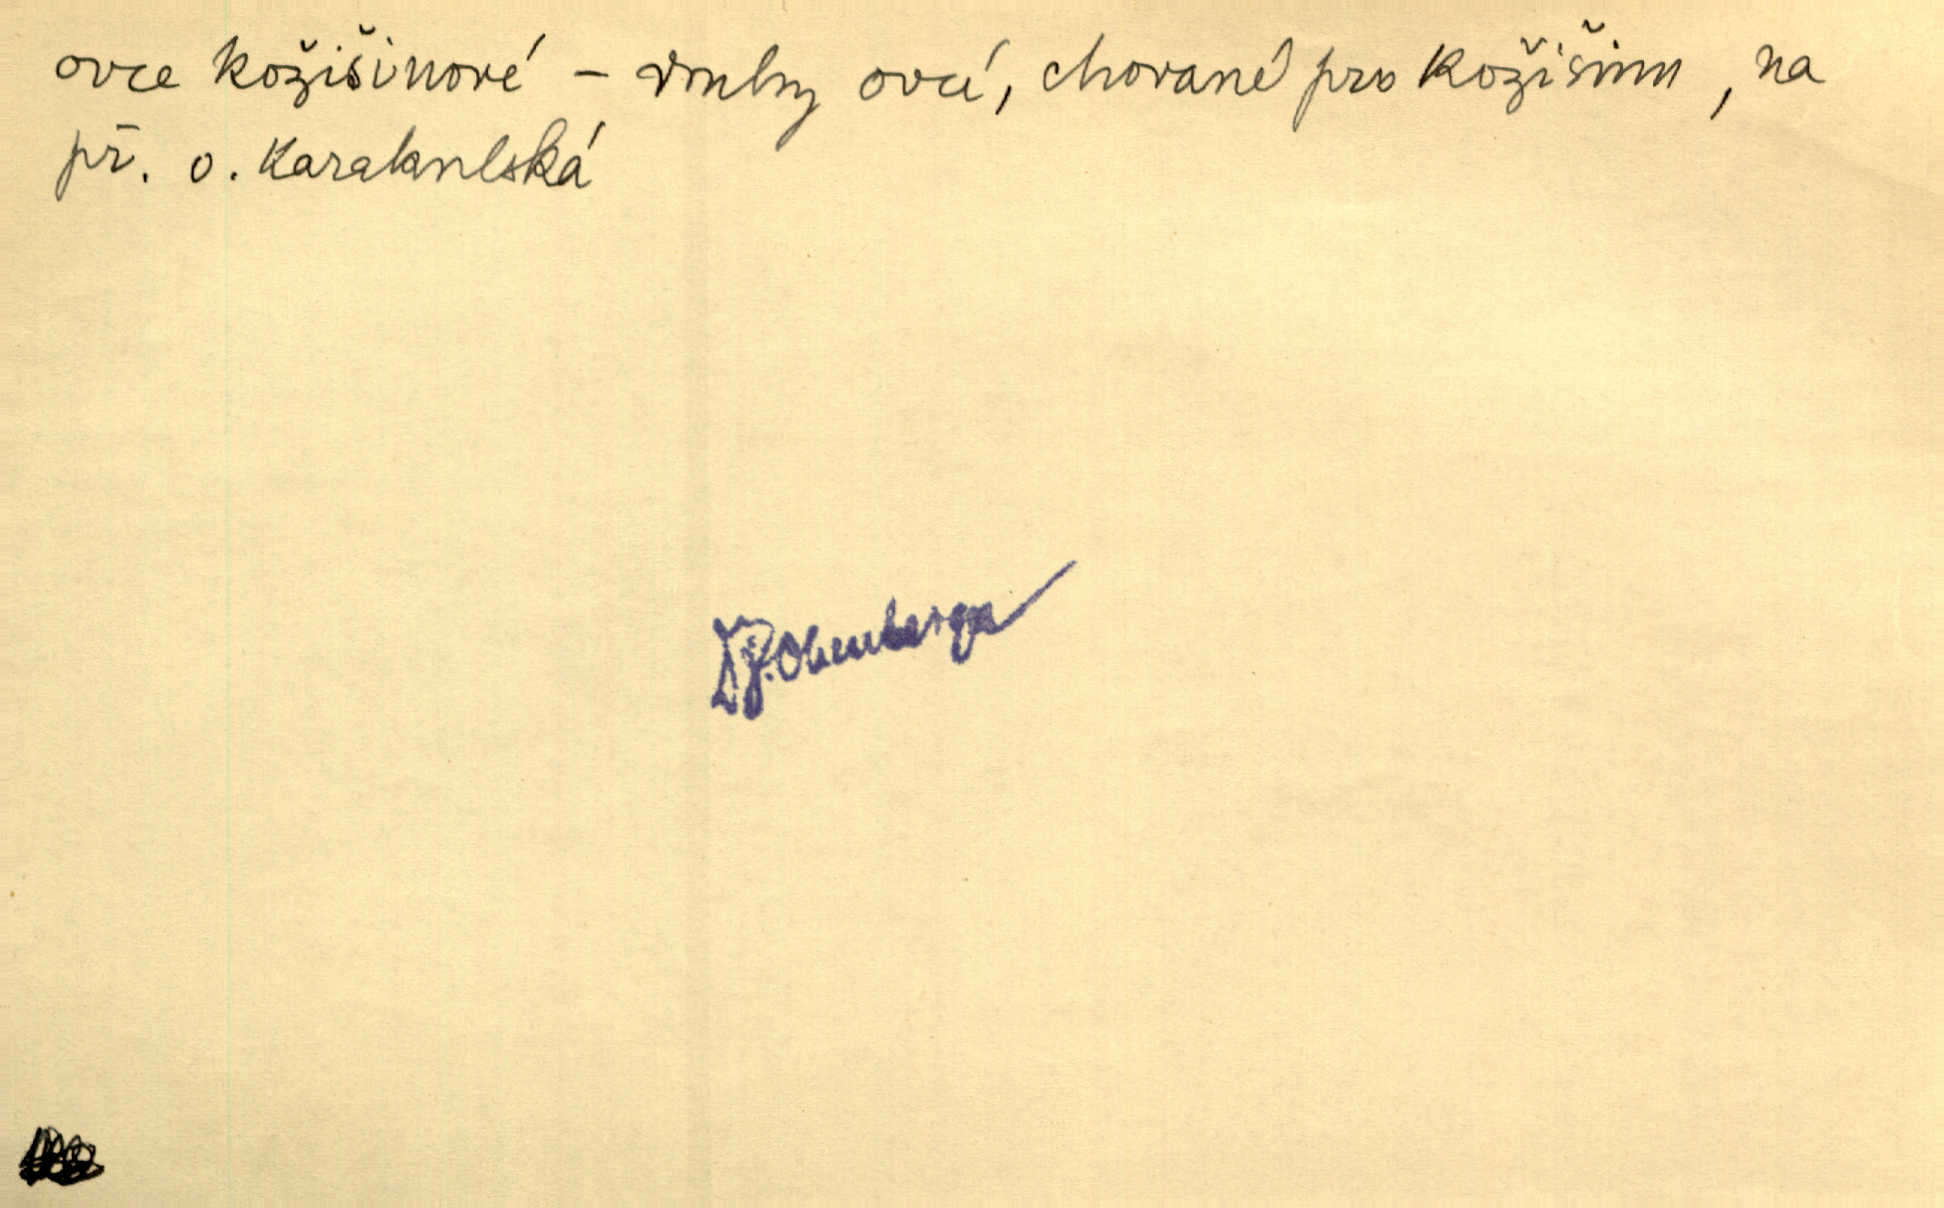 ovce kožišinové – druhy ovcí, chované pro kožišinu, na
př. o. Karakulská
Dr J. Obenberger